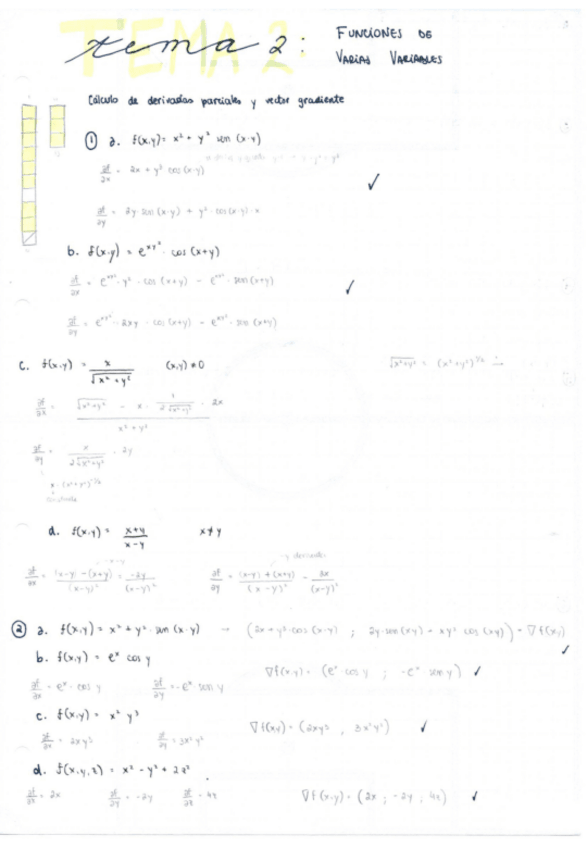 tema 2: FUNCIONES DE
VARIAS VARIABLES
Cálculo de derivadas parciales y vector gradiente
① a. f(x,y) = x² + y² sen (x·y)
∂f/∂x = 2x + y³ cos (x·y)
∂f/∂y = 2y · sen (x·y) + y² · cos (x·y) · x
✓
b. f(x,y) = e^(xy²) · cos (x+y)
∂f/∂x = e^(xy²) · y² · cos (x+y) - e^(xy²) · sen (x+y)
✓
∂f/∂y = e^(xy²) · 2xy · cos (x+y) - e^(xy²) · sen (x+y)
c. f(x,y) = x / √(x²+y²) (x,y) ≠ 0
√(x²+y²) = (x²+y²)^(1/2)
∂f/∂x = (√(x²+y²) - x · 1/(2√(x²+y²)) · 2x) / (x²+y²)
∂f/∂y = x / (2√(x²+y²)) · 2y
x · (x²+y²)^(-1/2)
constante
d. f(x,y) = (x+y) / (x-y) x ≠ y
∂f/∂x = ((x-y) - (x+y)) / (x-y)² = -2y / (x-y)²
-y derivada
∂f/∂y = ((x-y) + (x+y)) / (x-y)² = 2x / (x-y)²
② a. f(x,y) = x² + y² · sen (x·y) → (2x + y³·cos (x·y) ; 2y·sen (xy) + xy² cos (xy)) = ∇f(x,y)
✓
b. f(x,y) = e^x cos y
∂f/∂x = e^x · cos y ∂f/∂y = -e^x sen y ∇f(x,y) = (e^x cos y ; -e^x sen y) ✓
c. f(x,y) = x² y³
∂f/∂x = 2xy³ ∂f/∂y = 3x²y² ∇f(x,y) = (2xy³ , 3x²y²) ✓
d. f(x,y,z) = x² - y² + 2z²
∂f/∂x = 2x ∂f/∂y = -2y ∂f/∂z = 4z ∇f(x,y) = (2x ; -2y ; 4z) ✓